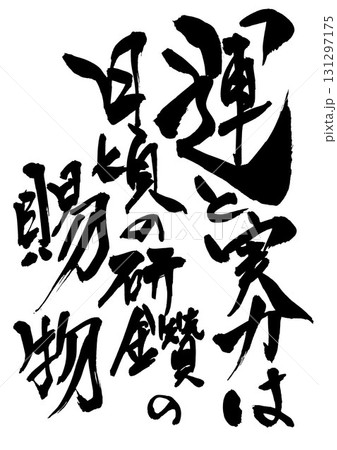 運と実力は
日頃の研鑽の
賜物
pixta.jp - 131297175